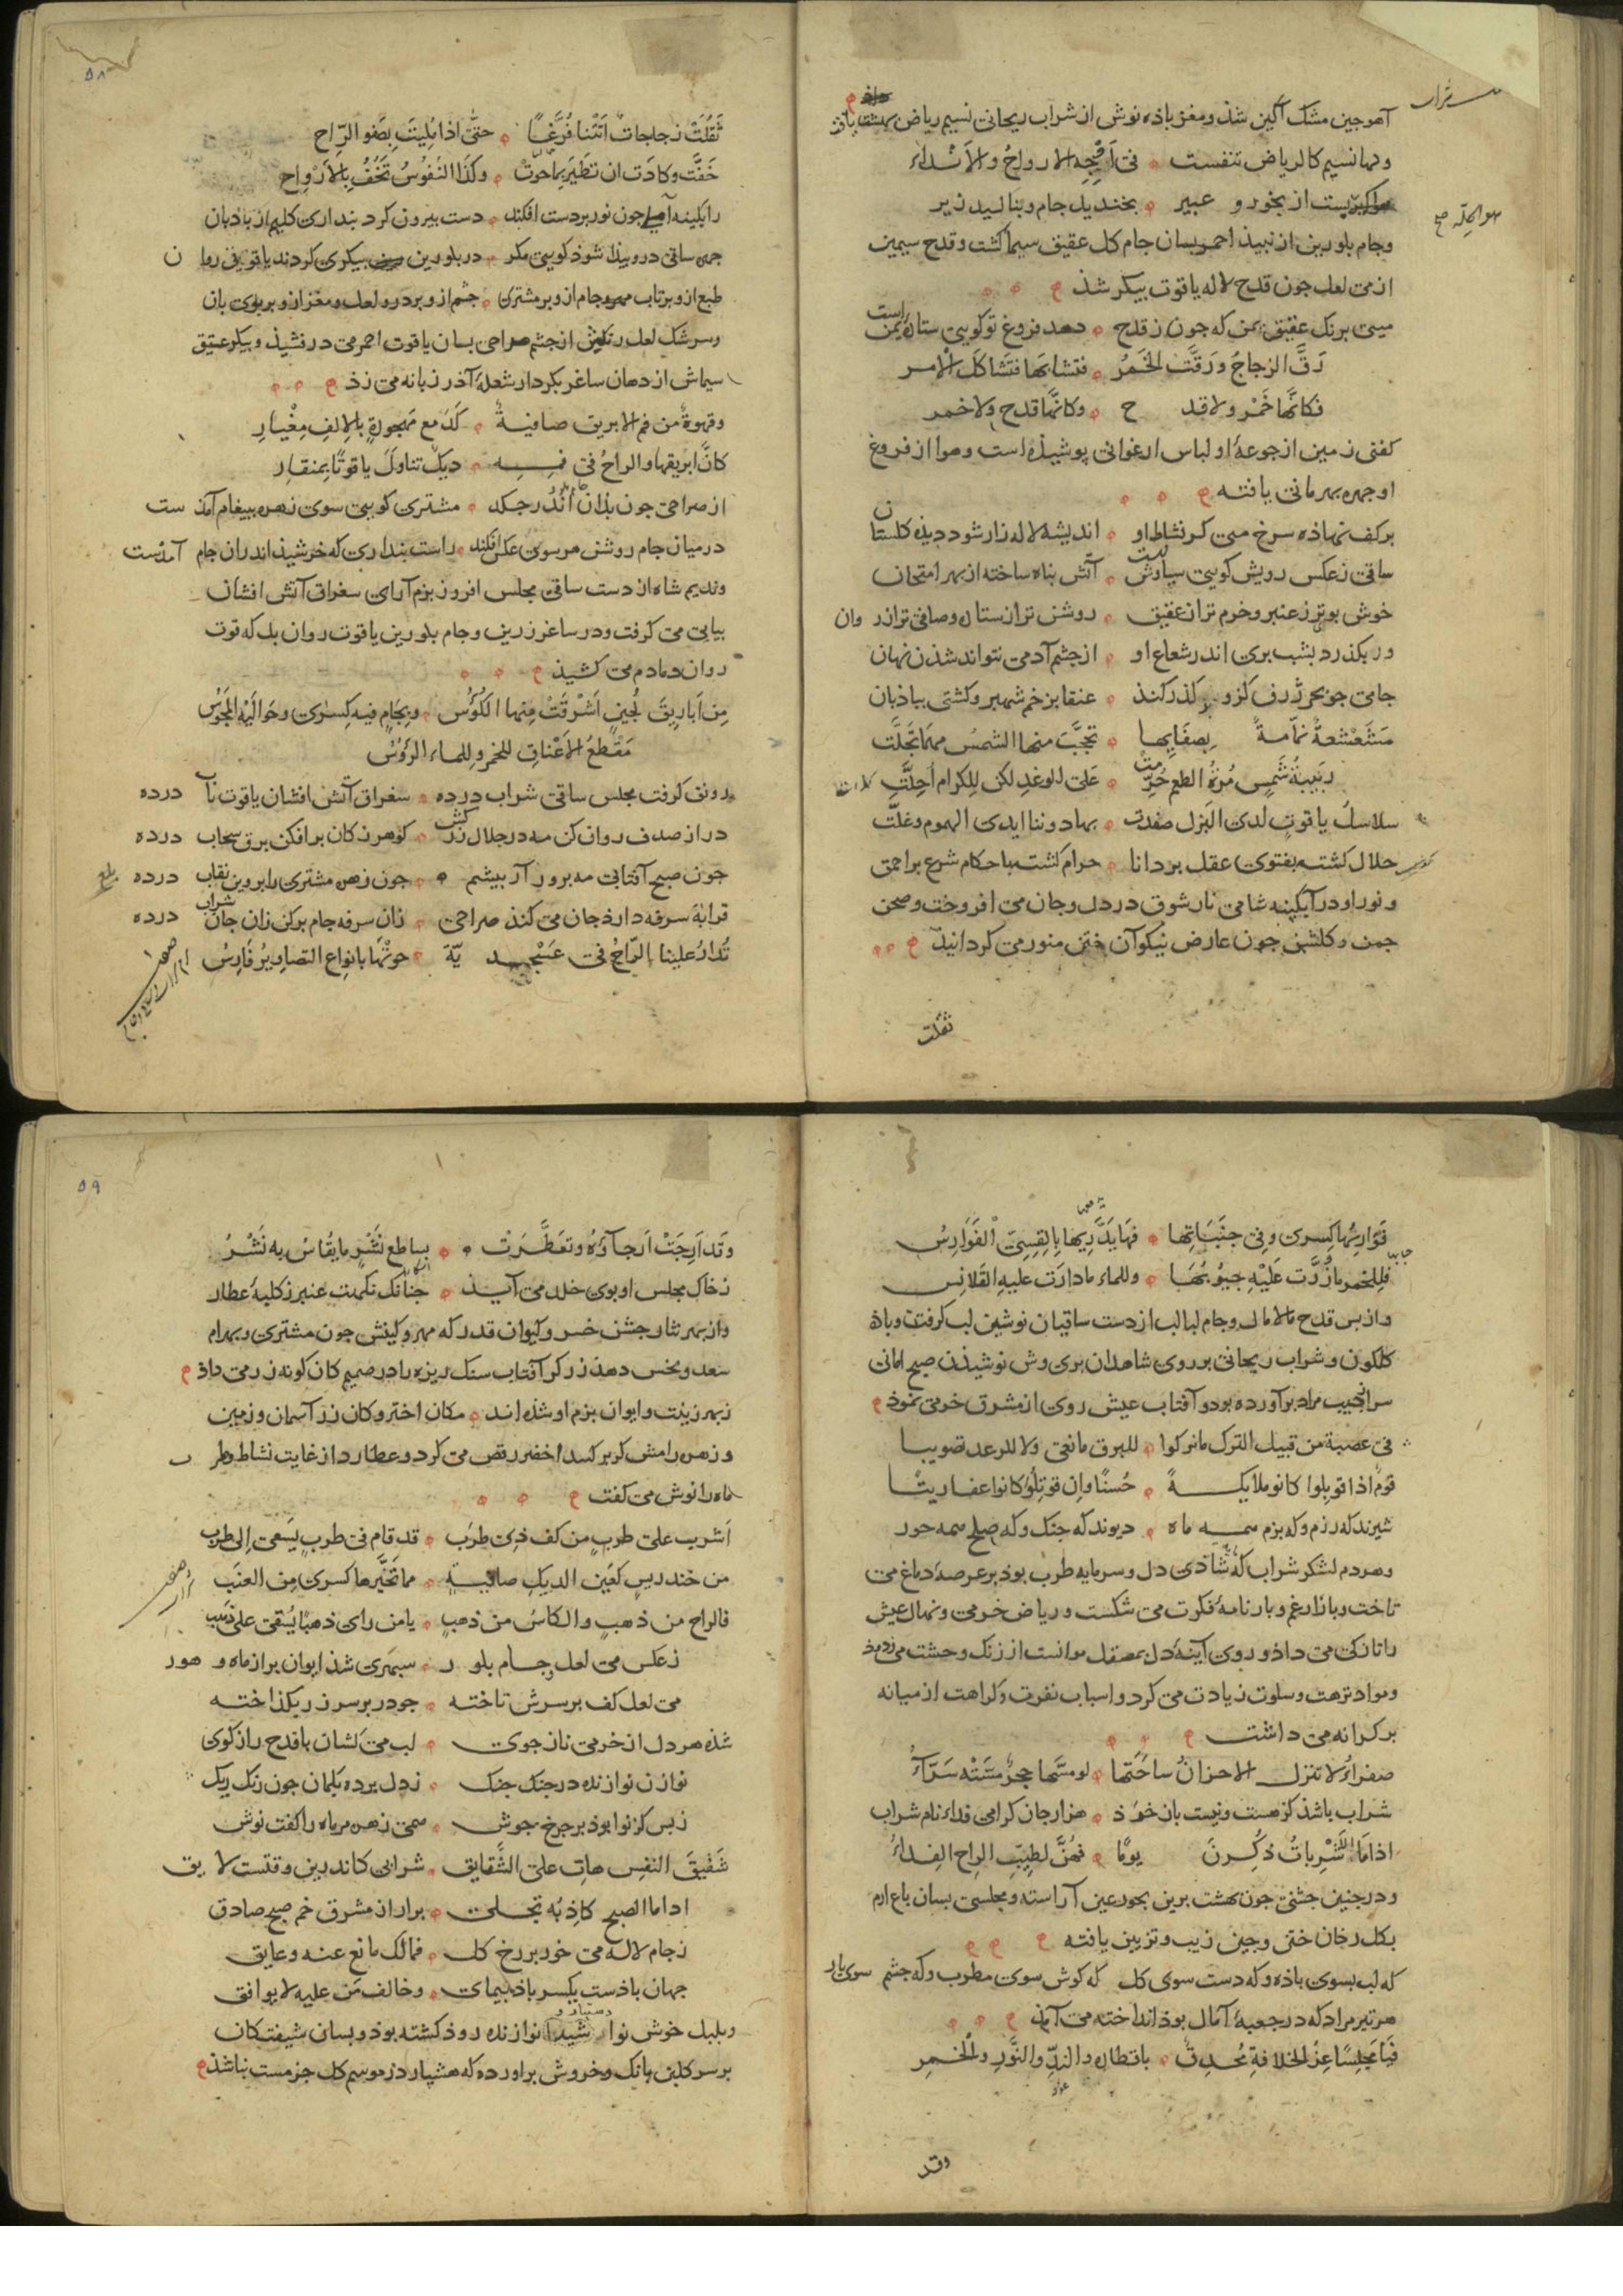 آهو جین مشک آکین شذ و مغز باذه نوش از شراب ریحانی نسیم ریاض بهشت یافت
ولها نسیم کالریاض تنفست فی اوجه الارواح والانداء
از بخور و عبیر بخندید جام و بنالید زیر
وجام بلورین از نبیذ احمر بسان جام کل عقیق سیما کشت و قدح سیمین
از می لعل جون قدح لاله یاقوت بیکر شذ
میی برنک عقیق یمن که جون ز قدح دهد فروغ تو کویی ستارۀ یمن است
رَقَّ الزجاجُ ورَقَّت الخَمرُ فتشابها فتَشاکل الامر
فکانَّها خَمر ولا قدح وکانَّها قدح ولا خمر
کفتی زمین از جرعۀ او لباس ارغوانی پوشیذه است وهوا از فروغ
او جهره بهرمانی یافته
برکف نهاذه سرخ میی کز نشاط او اندیشه لاله زار شود دیذه کلستان
ساقی ز عکس رویش کویی سیاوش است آتش بناه ساخته از بهر امتحان
خوش بوی تر ز عنبر و خرم تر از عقیق روشن تر از ستاره و صافی تر از روان
ور بکذرد بشب بری اندر شعاع او از جشم آدمی نتواند شذن نهان
جایی جو بحر ژرف کزو بر کذر کنذ عنقا بزخم شهپر و کشتی بباذبان
مشعشعة نمّامة بصفایها تحجّب منها الشمس مهما تجلّت
ربیبة شمس مُرّة الطعم حُرّمت علی الوغد لکن للکرام احلّت
سلاسل یاقوت لدی البزل صفدت بها دوننا ایدی الهموم وغلّت
حلال کشته بفتوی عقل بر دانا حرام کشته باحکام شرع بر احمق
و نور او در آبکینه شامی نار شوق در دل و جان می افروخت و صحن
جمن و کلشن جون عارض نیکوآن ختن منور می کردانید
ثقلت
۵۸
ثَقُلَتْ زجاجاتٌ اَتَتْنا فُرَّغًا حتّی اذا مُلِیَت بِصَفو الرّاح
خَفَّت وکادَت ان تَطَیرَ بما حوَت وکذا النفُوسُ تَخُفُّ بالارواح
جون نور بر دست افکند دست بیرون کرد بنداری کلیم از باذبان
جهره ساقی درو پیذا شود کویی مکر در بلورین بیکری کردند یاقوتی روان
طبع ازو برتاب مهر و جام ازو بر مشتری جشم ازو بر درو لعل و مغز ازو بر بوی بان
وسرشک لعل رنکش از جشم صراحی بسان یاقوت احمر می درفشیذ و بیکر عقیق
سیماش از دهان ساغر بکردار شعلۀ آذر زبانه می زذ
وقهوةٌ من فم الابریق صافیةٌ کَدَمع مَهجورةٍ بالالف مِغْیار
کانّ ابریقها والراحُ فی فمه دیکٌ تناولَ یاقوتًا بمنقار
از صراحی جون بذان جام اندر جکد مشتری کویی سوی زهره بپیغام آمذست
در میان جام روشن هر سوی عکس افکند راست بنداری که خرشیذ اندران جام آمذست
وندیم شاه از دست ساقی مجلس افروز بزم آرای سغراق آتش افشان
بیابی می کرفت و در ساغر زرین و جام بلورین یاقوت روان بل که قوت
روان دمادم می کشیذ
مِن اَباریقَ لُجینٍ اَشرقَتْ مِنها الکؤُس وبجَامٍ فیه کِسری وحَوالَیه المجوس
مَقطعُ الاَعْناقِ للخمر وللماء الرؤُسُ
رونق کرفت مجلس ساقی شراب درده سغراق آتش افشان یاقوت ناب درده
در از صدف روان کن مه در جلال زرکش کوهر ز کان برافکن برق سحاب درده
جون صبح آفتابی مه برور آر بیشم جون زهره مشتری را بروین نقاب درده
قرابه سرفه دارذ جان می کنذ صراحی زان سرفه جام بر کن زان جان شراب درده
تُدارُ علینا الرّاحُ فی عَسجدیّة حوتْها بانواع التصاویر فارِسُ
قَرارتُها کِسری وفی جنَباتِها مَهًا تَدَّریها بالقِسِیّ الفَوارِسُ
فلِلخمر ما زُرَّت عَلَیْهِ جیُوبُها وللماء ما دارَت علیهِ القلانِس
و از بس قدح مالامال و جام لبالب از دست ساقیان نوشین لب کرفتن و باذه
کلکون و شراب ریحانی بر روی شاهدان بری وش نوشیذن صبح امانی
سر از جیب مراد برآورده بود و آفتاب عیش روی از مشرق خرمی نموذ
فی عصبة من قبیل الترک ما ترکوا للبرق مانعی ولا للرعد تصویبا
قومٌ اذا قوبِلوا کانو ملایکةً حُسنًا وان قوتِلُوا کانوا عفاریتا
شیرند که رزم و که بزم همه ماه دیوند که جنک و که صلح همه حور
وهر دم لشکر شراب که شاذی دل و سرمایه طرب بوذ بر عرصۀ دماغ می
تاخت و بازار غم و بارنامۀ فکرت می شکست و ریاض خرمی و نهال عیش
را تازکی می داذ و روی آینۀ دل بمصقل موانست از زنک وحشت می زدوذ
ومواد نزهت و سلوت زیادت می کرد و اسباب نفرت و کراهت از میانه
بر کرانه می داشت
صفراءُ لا تنزل الاحزانُ ساحَتَها لو مسّها حجرٌ مسّته سرّاءُ
شراب باشذ کز هست و نیست بازخوذ هزار جان کرامی فداء نام شراب
اذا ما الشَّرِباتُ ذکِرنَ یومًا فهُنَّ لطیّبِ الراح الفداءُ
ودر جنین جشنی جون بهشت برین بحور عین آراسته و مجلسی بسان باغ ارم
بکل رخان ختن وجین زیب و تزیین یافته
که لب بسوی باذه و که دست سوی کل که کوش سوی مطرب و که جشم سوی یار
هر تیر مراد که در جعبۀ آمال بوذ انداخته می آمذ
فیا مجلِسًا عِزُّ الخلافةِ مُحدِق باقطاره والندِّ والنَّور والخمرِ
وقد
۵۹
وقد اَرِجَتْ اَرجآؤه وتعَطَّرَتْ بساطع نَشْرٍ ما یُقاسُ به نَشْرُ
ز خاک مجلس او بوی خلد می آیذ جنانک نکهت عنبر ز کلبۀ عطار
و از بهر نثار جشن خسرو کیوان قدر که مهر و کینش جون مشتری و بهرام
سعد و نحس دهذ زرکر آفتاب سنک ریزه را در صمیم کان کونه زر می داذ
ز بهر زینت و ایوان بزم او شذه اند مکان اختر و کان زر آسمان و زمین
و زهره رامش کر بر کنبد اخضر رقص می کرد و عطارد از غایت نشاط و طرب
ماه را نوش می کفت
اَشرب علی طربٍ من کف ذی طرَب قد قام فی طربٍ یَسعی اِلی طرب
من خندریسٍ کعَین الدیک صافیةٍ مما تَخَیَّرها کسری مِن العنَب
فالراح من ذهبٍ والکاسُ من ذهبٍ یا من رای ذهبًا یُسقی علی ذهب
ز عکس می لعل و جام بلور سبهری شذ ایوان بر از ماه و هور
می لعل کف بر سرش تاخته جو در بر سر زر بکذاخته
شذه هر دل از خرمی ناز جوی لب می کشان با قدح رازکوی
نوازن نوازنده در جنک جنک ز دل برده بکمان جون زنک ریک
ز بس کز نوا بوذ بر جرخ جوش همی زهره مر ماه را کفت نوش
شَقیقَ النفسِ هات علی الشَّقایق شرابی کاندرین وقتست لایق
اذا ما الصبح کاذبُه تجلی برار از مشرق خم صبح صادق
ز جام لاله می خور بر رخ کل فمالک مانع عنه وعایق
جهان باذست یکسر باذه بیمای وخالف مَن علیه لا یوافق
و بلبل خوش نوا شیدا نوازنده روذ کشته بوذ و بسان شیفتکان
بر سر کلبن بانک و خروش براورده که هشیار در موسم کل جز مست نباشذ